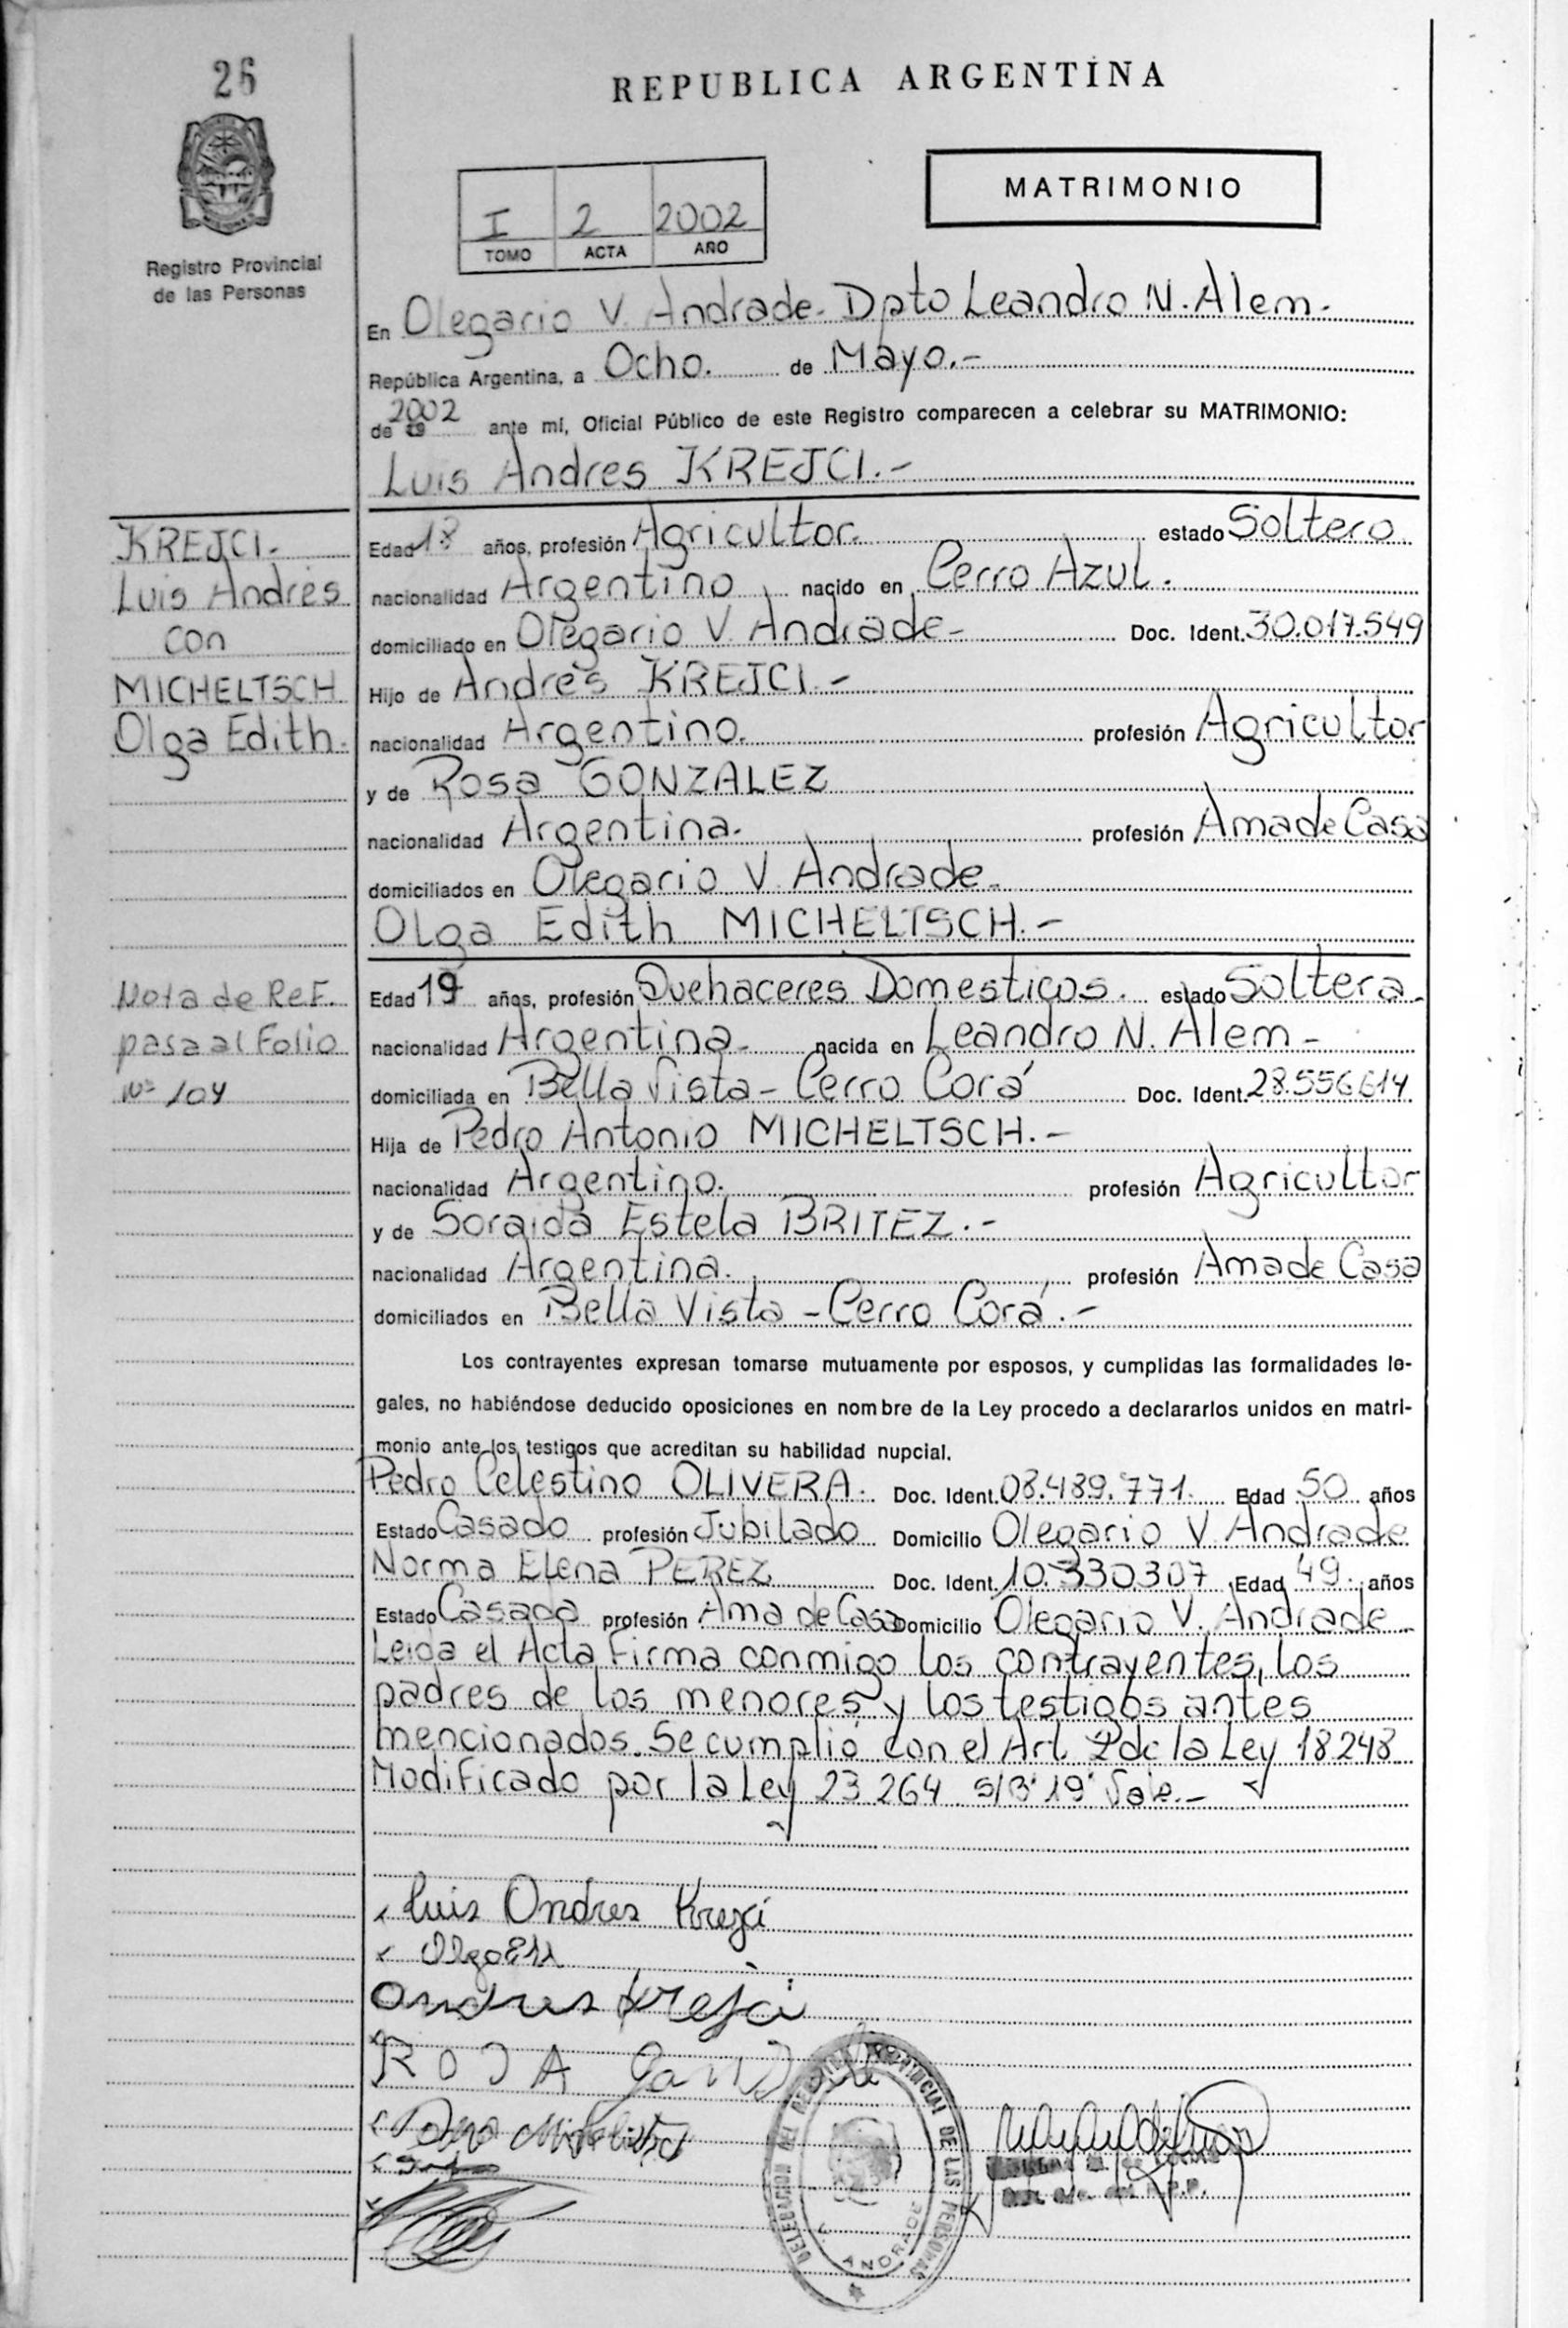 26
REPUBLICA ARGENTINA
MATRIMONIO
I 2 2002
TOMO ACTA AÑO
Registro Provincial
de las Personas
En Olegario V. Andrade. Dpto Leandro N. Alem.
República Argentina, a Ocho. de Mayo.-
de 19 2002 ante mí, Oficial Público de este Registro comparecen a celebrar su MATRIMONIO:
Luis Andres KREJCI.-
KREJCI.
Luis Andrés
con
MICHELTSCH
Olga Edith.
Edad 18 años, profesión Agricultor. estado Soltero.
nacionalidad Argentino nacido en Cerro Azul.
domiciliado en Olegario V. Andrade- Doc. Ident. 30.017.549
Hijo de Andrés KREJCI.-
nacionalidad Argentino. profesión Agricultor
y de Rosa GONZALEZ
nacionalidad Argentina. profesión Ama de Casa
domiciliados en Olegario V. Andrade.
Olga Edith MICHELTSCH.-
Nota de Ref.
pasa al Folio
Nº 104
Edad 19 años, profesión Quehaceres Domesticos. estado Soltera.
nacionalidad Argentina. nacida en Leandro N. Alem -
domiciliada en Bella Vista - Cerro Corá Doc. Ident. 28.556.614.
Hija de Pedro Antonio MICHELTSCH.-
nacionalidad Argentino. profesión Agricultor
y de Soraida Estela BRITEZ.-
nacionalidad Argentina. profesión Ama de Casa
domiciliados en Bella Vista - Cerro Corá.-
Los contrayentes expresan tomarse mutuamente por esposos, y cumplidas las formalidades le-
gales, no habiéndose deducido oposiciones en nombre de la Ley procedo a declararlos unidos en matri-
monio ante los testigos que acreditan su habilidad nupcial.
Pedro Celestino OLIVERA. Doc. Ident. 08.489.771. Edad 50 años
Estado Casado profesión Jubilado Domicilio Olegario V. Andrade
Norma Elena PEREZ Doc. Ident. 10.330.307 Edad 49. años
Estado Casada profesión Ama de Casa Domicilio Olegario V. Andrade.
Leida el Acta Firma conmigo los contrayentes, los
padres de los menores y los testigos antes
mencionados. Se cumplió con el Art. 2 de la Ley 18248
Modificado por la Ley 23.264 s/B "19" Vale.-
Luis Andres Krejci
Olga E M
Andres Krejci
ROSA
DELEGACION DEL REGISTRO PROVINCIAL DE LAS PERSONAS
ANDRADE